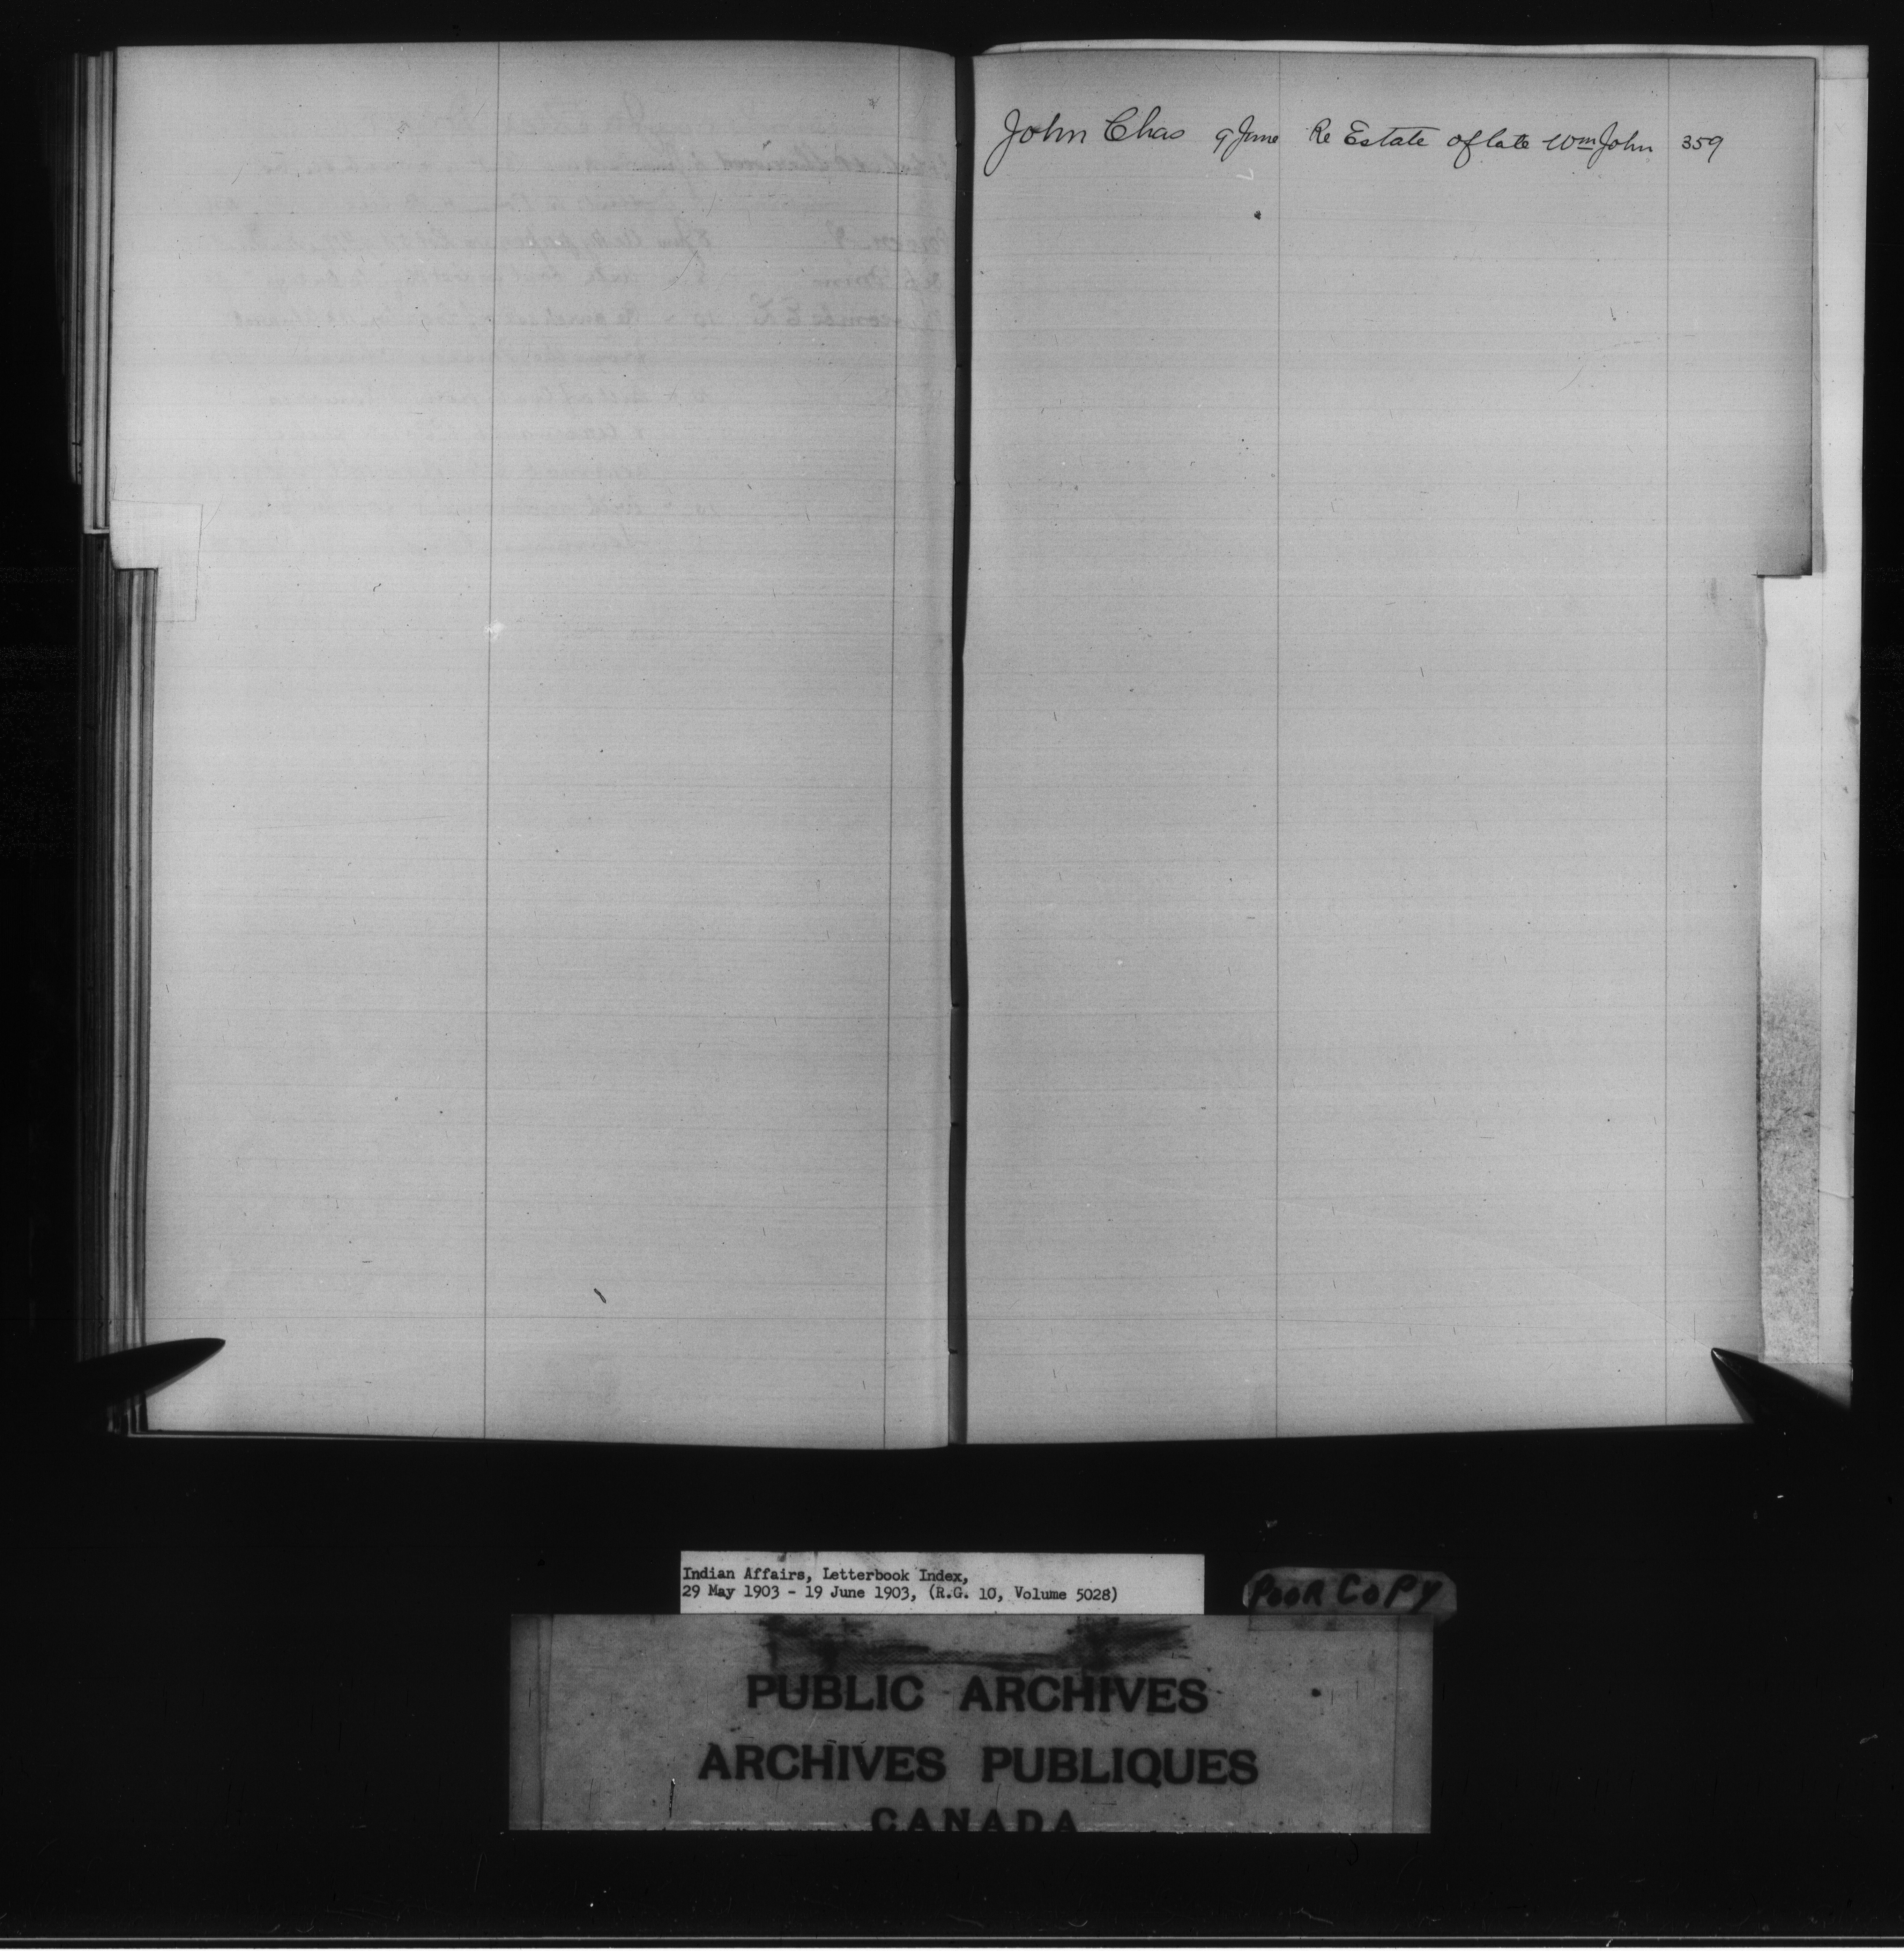 John Chas 9 June Re Estate of late Wm John 359
Indian Affairs, Letterbook Index,
29 May 1903 - 19 June 1903, (R.G. 10, Volume 5028)
POOR COPY
PUBLIC ARCHIVES
ARCHIVES PUBLIQUES
CANADA